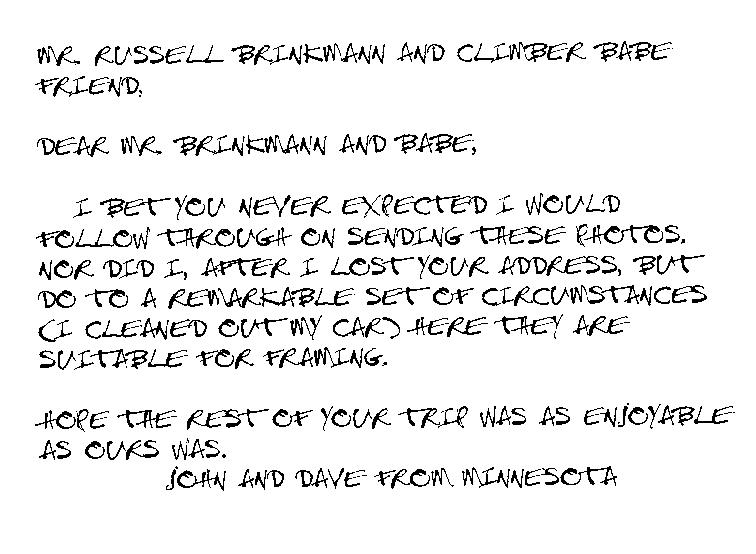 MR. RUSSELL BRINKMANN AND CLIMBER BABE
FRIEND,
DEAR MR. BRINKMANN AND BABE,
I BET YOU NEVER EXPECTED I WOULD
FOLLOW THROUGH ON SENDING THESE PHOTOS.
NOR DID I, AFTER I LOST YOUR ADDRESS, BUT
DO TO A REMARKABLE SET OF CIRCUMSTANCES
(I CLEANED OUT MY CAR) HERE THEY ARE
SUITABLE FOR FRAMING.
HOPE THE REST OF YOUR TRIP WAS AS ENJOYABLE
AS OURS WAS.
JOHN AND DAVE FROM MINNESOTA